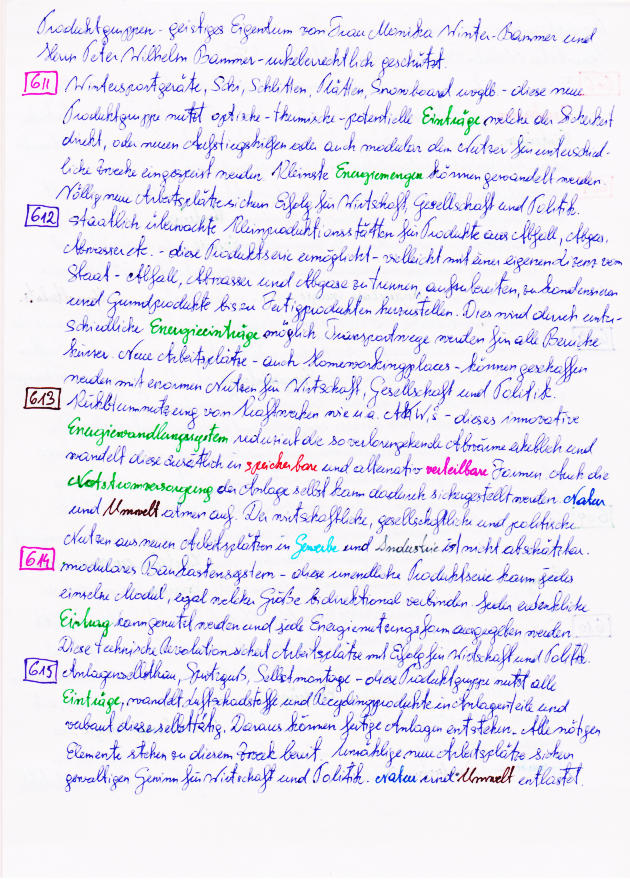 Produktgruppen - geistiges Eigentum von Frau Monika Winter-Bammer und
Herrn Peter Wilhelm Bammer - urheberrechtlich geschützt.
611 Wintersportgeräte, Schi, Schlitten, Platten, Snowboard usglb - diese neue
Produktgruppe nutzt optische - thermische - potentielle Einträge welche der Sicherheit
direkt, oder neuen Aufstiegshilfen oder auch modular dem Nutzer für unterschied-
liche Zwecke eingespeist werden. Kleinste Energiemengen können gewandelt werden.
Völlig neue Arbeitsplätze sichern Erfolg für Wirtschaft, Gesellschaft und Politik.
612 staatlich überwachte Kleinproduktionsstätten für Produkte aus Abfall, Abgas,
Abwasser etc. - diese Produktserie ermöglicht - vielleicht mit einer eigenen Lizenz vom
Staat - Abfall, Abwasser und Abgase zu trennen, aufzubereiten, zu kondensieren
und Grundprodukte bis zu Fertigprodukten herzustellen. Dies wird durch unter-
schiedliche Energieeinträge möglich Transportwege werden für alle Bereiche
kürzer. Neue Arbeitsplätze - auch Homeworkingplaces - können geschaffen
werden mit enormen Nutzen für Wirtschaft, Gesellschaft und Politik.
613 von Kraftwerken wie u.a. AKW's - dieses innovative
Energiewandlungssystem reduziert die so verlorengehende Abwärme erheblich und
wandelt diese zusätzlich in speicherbare und alternativ verteilbare Formen. Auch die
Notstromversorgung der Anlage selbst kann dadurch sichergestellt werden. Natur
und Umwelt atmen auf. Der wirtschaftliche, gesellschaftliche und politische
Nutzen aus neuen Arbeitsplätzen in Gewerbe und Industrie ist nicht abschätzbar.
614 modulares Baukastensystem - diese unendliche Produktserie kann jedes
einzelne Modul, egal welcher Größe bidirektional verbinden. Jeder erdenkliche
Eintrag kann genutzt werden und jede Energienutzungsform ausgegeben werden.
Diese technische Revolution sichert Arbeitsplätze mit Erfolg für Wirtschaft und Politik.
615 Anlagenselbstbau, Spritzguss, Selbstmontage - diese Produktgruppe nutzt alle
Einträge, wandelt Luftschadstoffe und Recyclingprodukte in Anlagenteile und
verbaut diese selbsttätig. Daraus können fertige Anlagen entstehen. Alle nötigen
Elemente stehen zu diesem Zweck bereit. Unzählige neue Arbeitsplätze sichern
gewaltigen Gewinn für Wirtschaft und Politik. Natur und Umwelt entlastet.